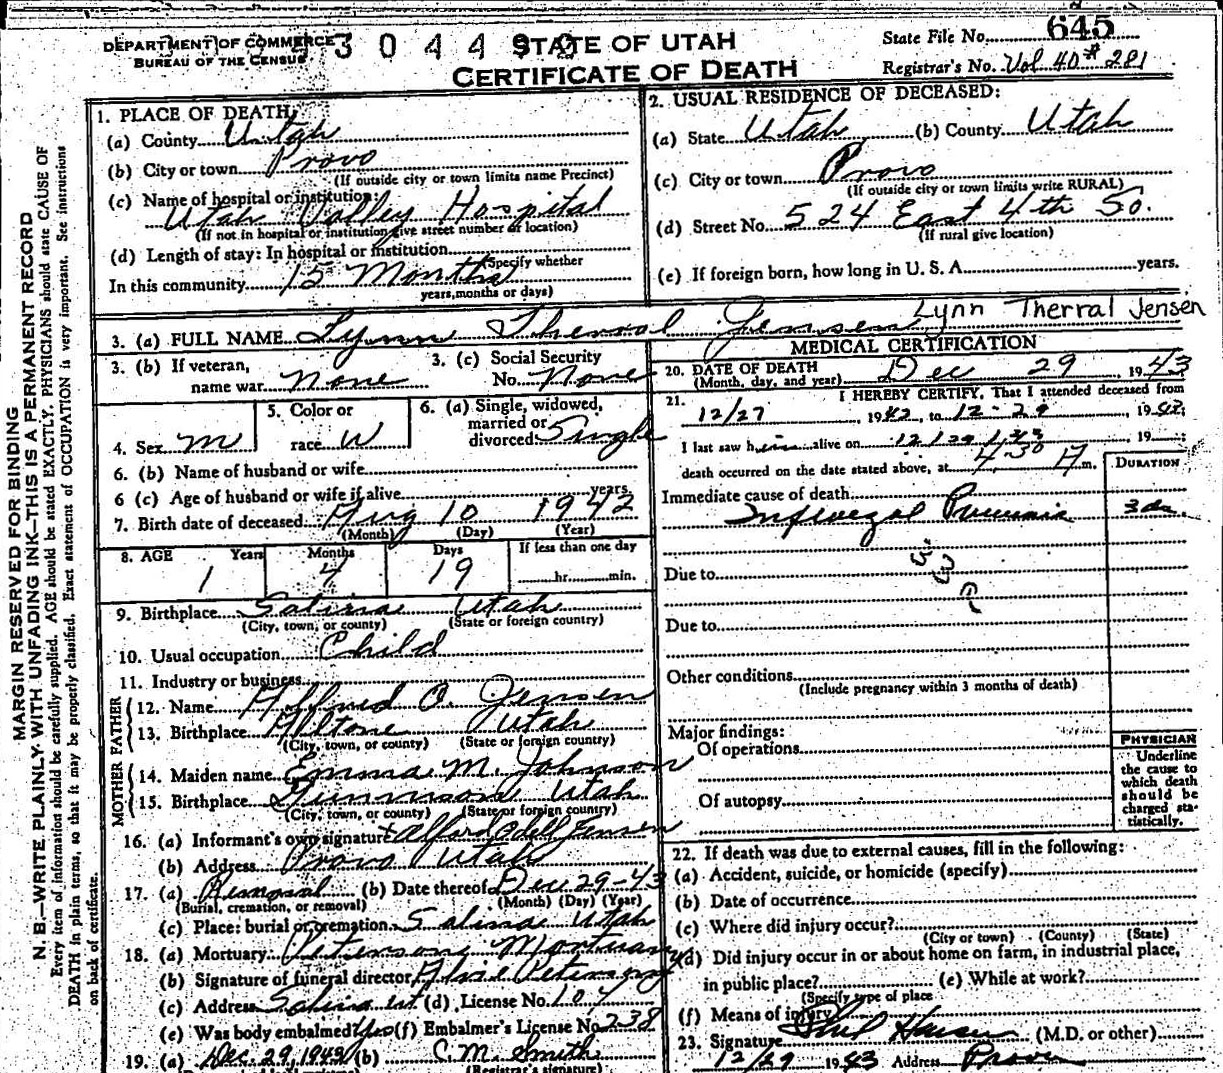 DEPARTMENT OF COMMERCE
BUREAU OF THE CENSUS
3 0 4 4
STATE OF UTAH
CERTIFICATE OF DEATH
State File No. 645
Registrar's No. Vol 40 # 281
1. PLACE OF DEATH
(a) County Utah
(b) City or town Provo
(If outside city or town limits name Precinct)
(c) Name of hospital or institution:
Utah Valley Hospital
(If not in hospital or institution give street number or location)
(d) Length of stay: In hospital or institution
(Specify whether
In this community 15 Months
years, months or days)
2. USUAL RESIDENCE OF DECEASED:
(a) State Utah (b) County Utah
(c) City or town Provo
(If outside city or town limits write RURAL)
(d) Street No. 524 East 4th So.
(If rural give location)
(e) If foreign born, how long in U. S. A. years.
3. (a) FULL NAME Lynn Therral Jensen
Lynn Therral Jensen
3. (b) If veteran,
name war none
3. (c) Social Security
No. None
4. Sex M
5. Color or
race W
6. (a) Single, widowed,
married or
divorced Single
6. (b) Name of husband or wife
6 (c) Age of husband or wife if alive years
7. Birth date of deceased Aug 10 1942
(Month) (Day) (Year)
8. AGE Years Months Days If less than one day
1 4 19 hr. min.
9. Birthplace Salina Utah
(City, town, or county) (State or foreign country)
10. Usual occupation Child
11. Industry or business
FATHER
12. Name O. Jensen
13. Birthplace Utah
(City, town, or county) (State or foreign country)
MOTHER
14. Maiden name Emma M. Johnson
15. Birthplace Gunnison Utah
(City, town, or county) (State or foreign country)
16. (a) Informant's own signature Odell Jensen
(b) Address Provo Utah
17. (a) Removal (b) Date thereof Dec 29-43
(Burial, cremation, or removal) (Month) (Day) (Year)
(c) Place: burial or cremation Salina Utah
18. (a) Mortuary Petersons Mortuary
(b) Signature of funeral director Petersen
(c) Address Salina Ut (d) License No. 107
(e) Was body embalmed Yes (f) Embalmer's License No. 238
19. (a) Dec. 29, 1943 (b) C. M. Smith
(Registrar's signature)
MEDICAL CERTIFICATION
20. DATE OF DEATH
(Month, day, and year) Dec 29, 1943
21. I HEREBY CERTIFY, That I attended deceased from
12/27 1942, to 12-29 19
I last saw h im alive on 19
death occurred on the date stated above, at 430 A m.
DURATION
Immediate cause of death
Influenzal Pneumonia 3 da.
33
Due to
Due to
Other conditions
(Include pregnancy within 3 months of death)
Major findings:
Of operations
Of autopsy
PHYSICIAN
Underline
the cause to
which death
should be
charged sta-
tistically.
22. If death was due to external causes, fill in the following:
(a) Accident, suicide, or homicide (specify)
(b) Date of occurrence
(c) Where did injury occur?
(City or town) (County) (State)
(d) Did injury occur in or about home on farm, in industrial place,
in public place? (e) While at work?
(Specify type of place
(f) Means of injury
23. Signature (M.D. or other)
12/29 1943 Address Provo
MARGIN RESERVED FOR BINDING
N. B.—WRITE PLAINLY WITH UNFADING INK—THIS IS A PERMANENT RECORD
Every item of information should be carefully supplied. AGE should be stated EXACTLY. PHYSICIANS should state CAUSE OF
DEATH in plain terms, so that it may be properly classified. Exact statement of OCCUPATION is very important. See instructions
on back of certificate.